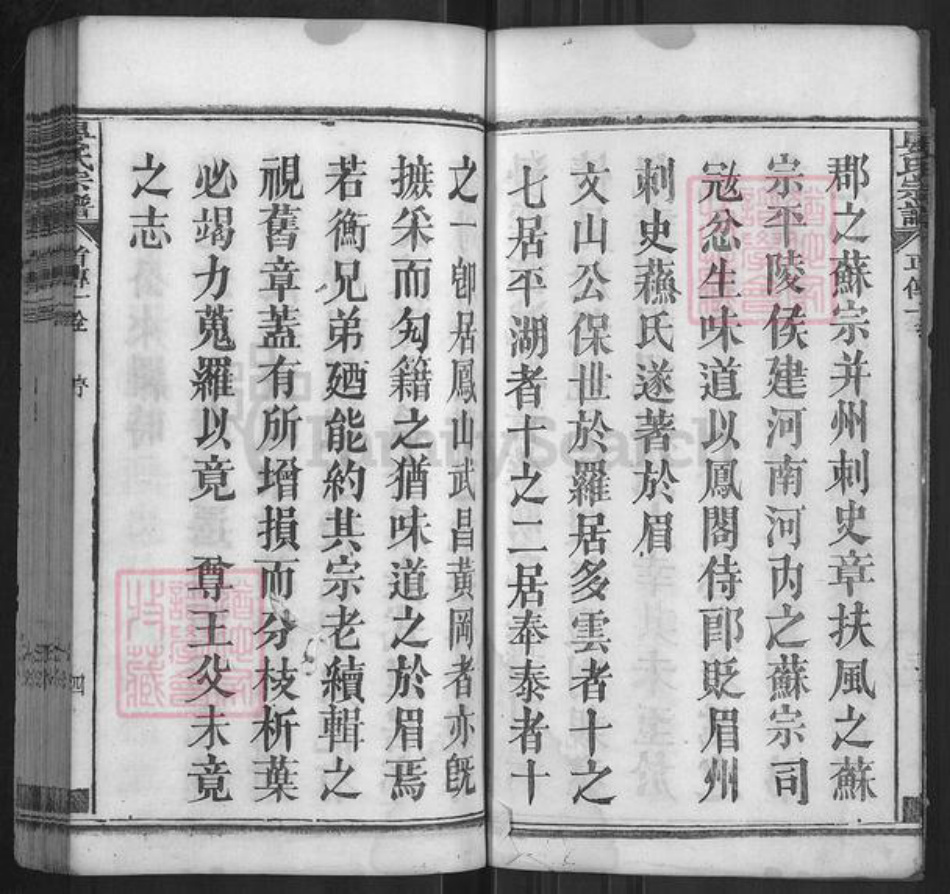 郡之蘇宗并州刺史章扶風之蘇
宗平陵侯建河南河內之蘇宗司
寇忿生味道以鳳閣侍郎貶眉州
刺史蘓氏遂著於眉
文山公保世於羅居多雲者十之
七居平湖者十之二居奉泰者十
之一卽居鳳山武昌黃岡者亦旣
摭采而匃籍之猶味道之於眉焉
若衡兄弟廼能約其宗老續輯之
視舊章蓋有所增損而分枝析葉
必竭力蒐羅以竟 尊王父未竟
之志
氏宗譜
序
四
FamilySearch